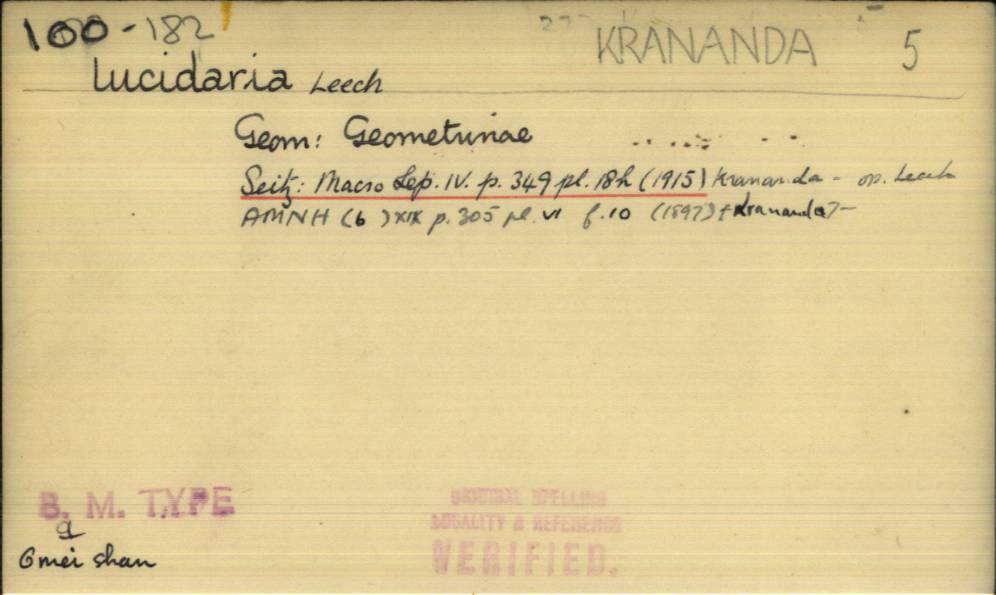 100-182 KRANANDA 5
lucidaria Leech
Geom: Geometrinae
Seitz: Macro Lep. IV. p. 349 pl. 18h (1915) Krananda - op. Leech
AMNH (6) XIX p. 305 pl. VI f. 10 (1897) Krananda -
B. M. TYPE
Omei shan
ORIGINAL SPELLING
LOCALITY & REFERENCE
VERIFIED.